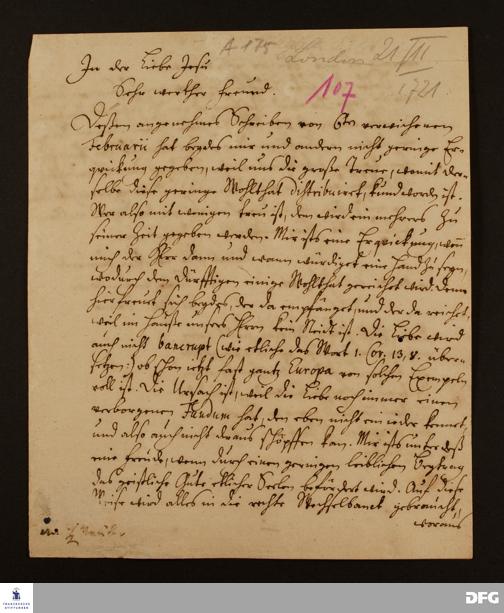 A 175
London 21/II
1721
107
In der Liebe Jesu
Sehr werther Freund.
Deßen angenehmes Schreiben von 6ten verwichenen
Februarii hat beydes mir und andern nicht geringe Er-
quickung gegeben, weil uns die große Treue, womit der-
selbe diese geringe Wohlthat distribuiret, kund worden ist.
Wer also mit wenigen treu ist, dem wird ein mehrers zu
seiner Zeit gegeben werden. Mir ists eine Erquickung, wenn
mich der Herr dann und wann würdiget eine Hand zu seyn,
wodurch den Dürfftigen einige Wohlthat gereichet wird, denn
hier freuet sich beydes der da empfänget, und der da reichet,
weil im Hauße unsers Herrn kein Neidt ist. Die Liebe wird
auch nicht bancrupt (wie etliche das Wort 1. Cor. 13, 8. über-
setzen) ob schon jetzt fast gantz Europa von solchen Exempeln
voll ist. Die Ursach ist, weil die Liebe noch immer einen
verborgenen Fundum hat, den eben nicht ein jeder kennet,
und also auch nicht draus schöpffen kan. Mir ists unterdeß
eine Freude, wenn durch einen geringen leiblichen Beytrag
das geistliche Gute etlicher Seelen befördert wird. Auf diese
Weise wird alles in die rechte Wechselbanck gebraucht,
woraus
FRANCKESCHE
STIFTUNGEN
DFG